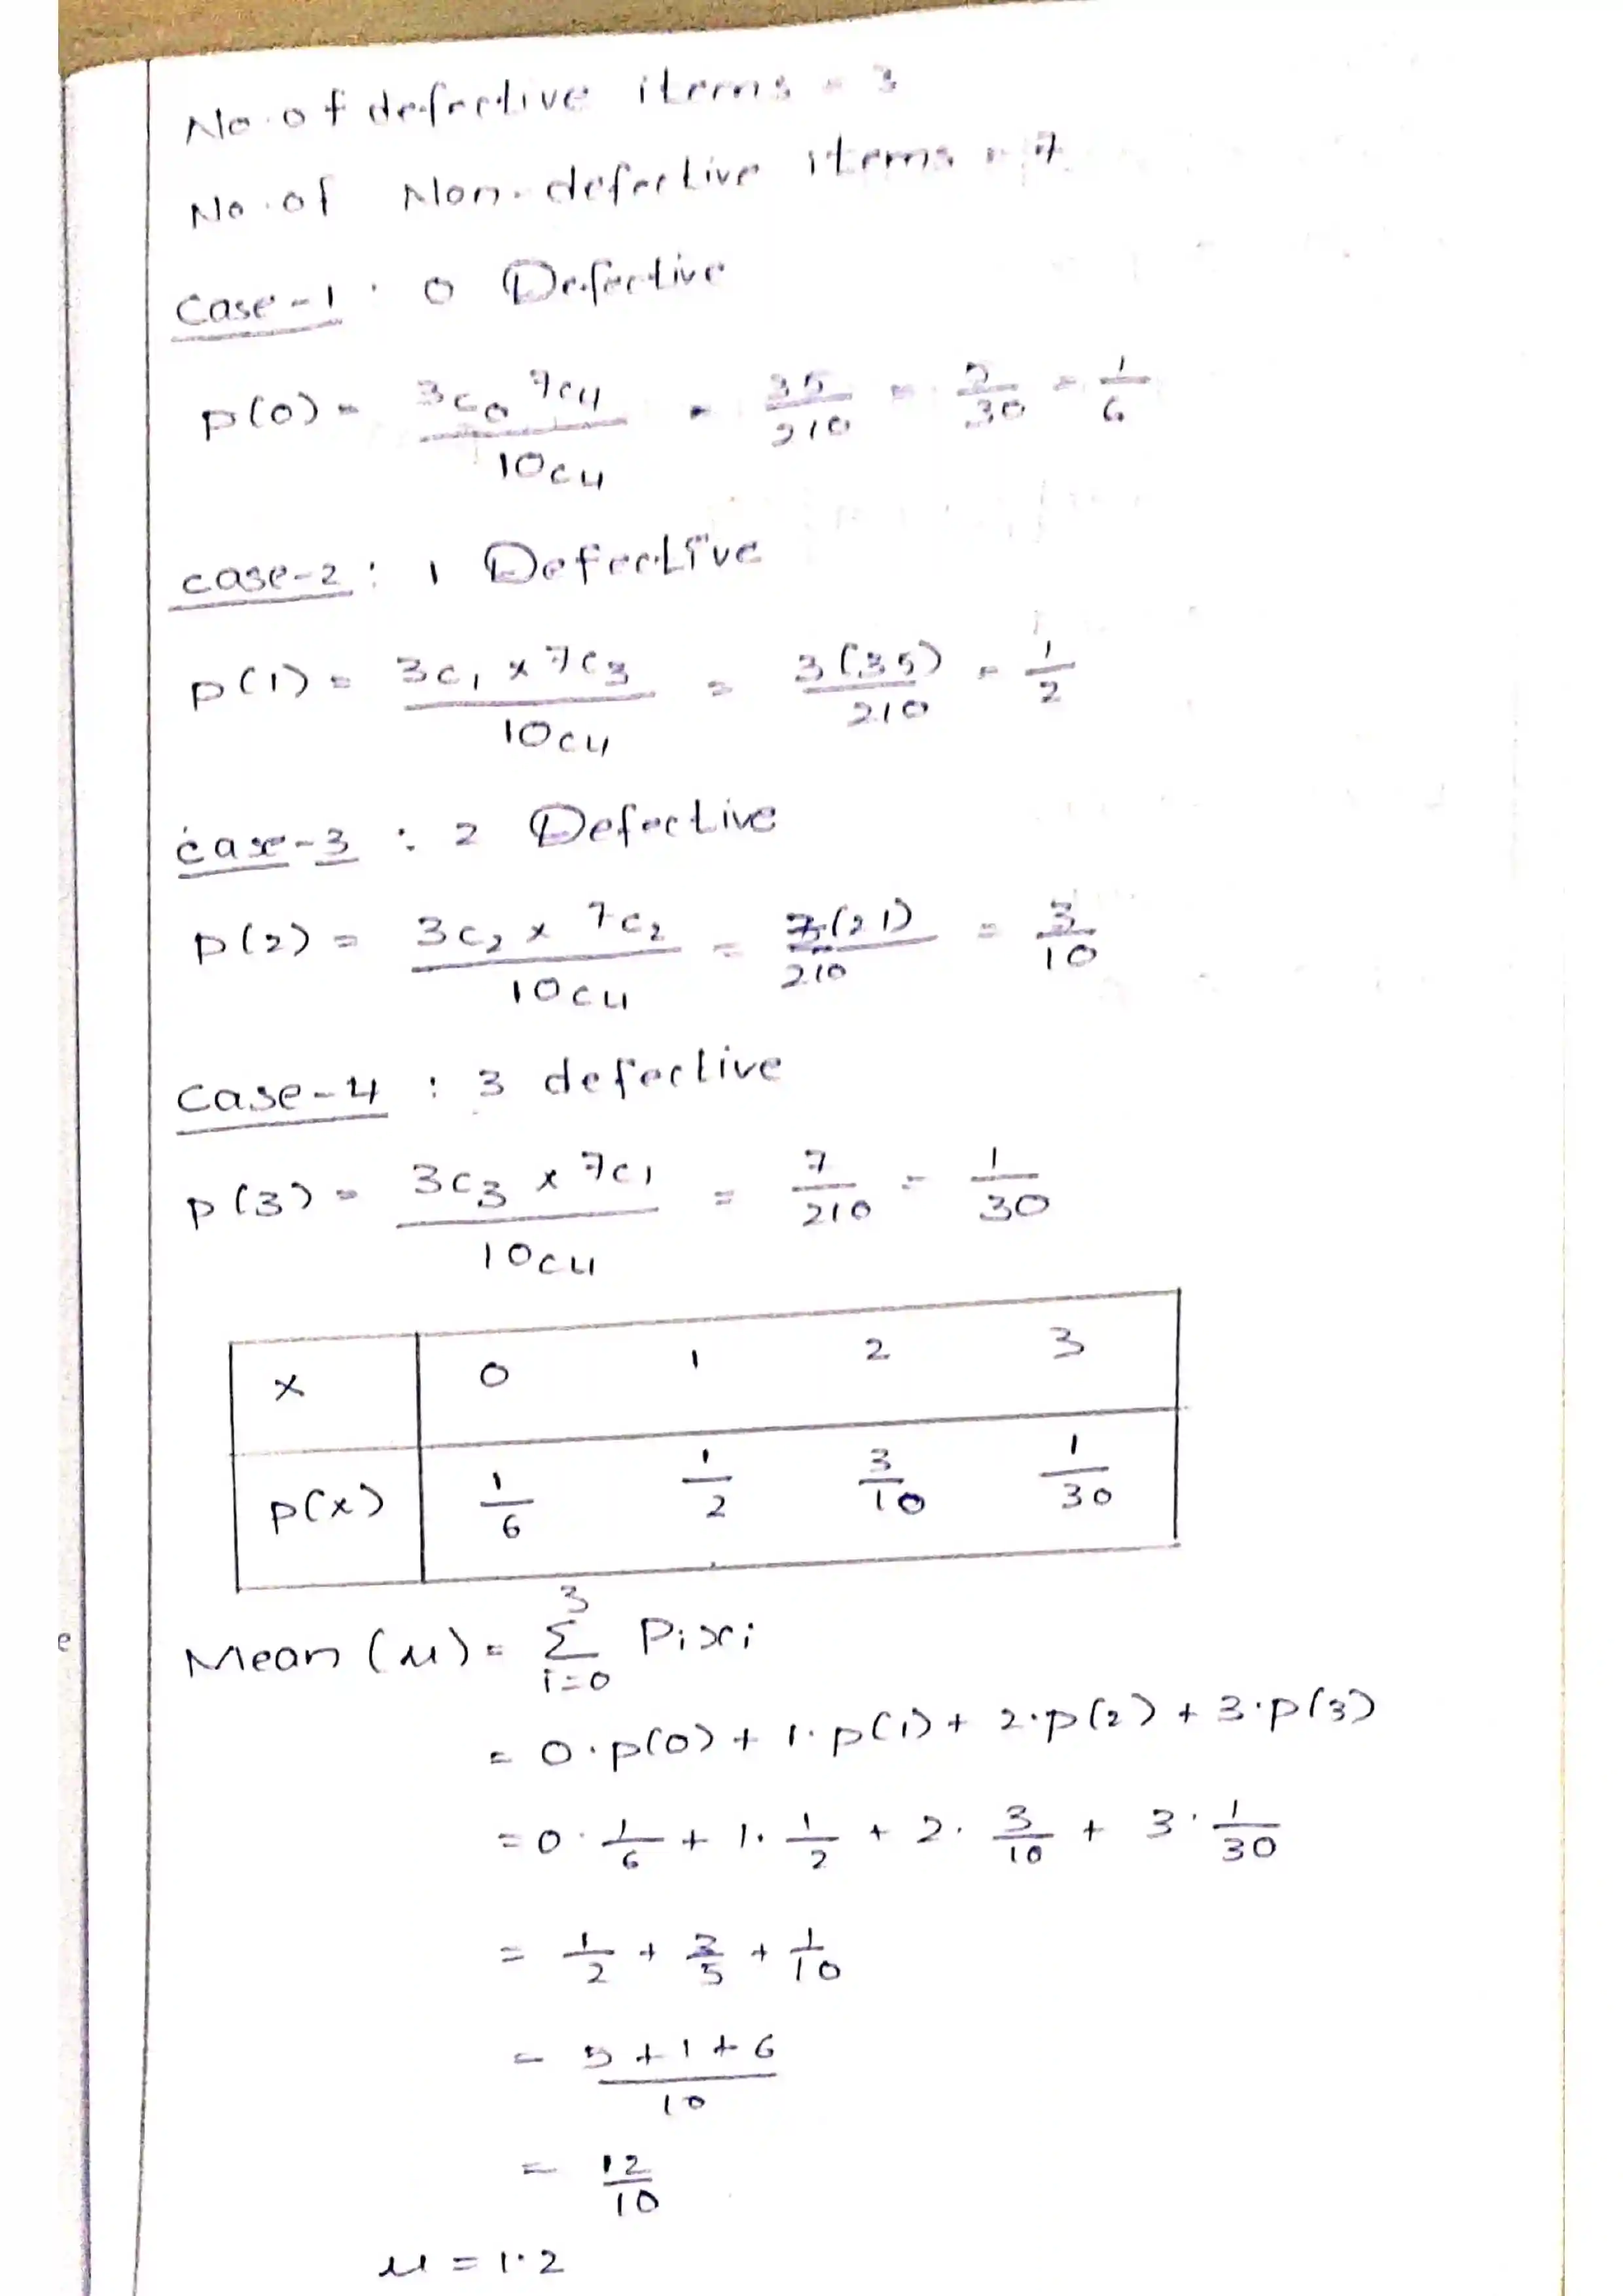 No. of defective items = 3
No. of Non-defective items = 7
Case-1 : 0 Defective
P(0) = 3c0 7c4 / 10c4 = 35/210 = 7/30 = 1/6
case-2 : 1 Defective
P(1) = 3c1 x 7c3 / 10c4 = 3(35)/210 = 1/2
case-3 : 2 Defective
P(2) = 3c2 x 7c2 / 10c4 = 3(21)/210 = 3/10
Case-4 : 3 defective
P(3) = 3c3 x 7c1 / 10c4 = 7/210 = 1/30
x 0 1 2 3
P(x) 1/6 1/2 3/10 1/30
Mean (μ) = 3 Σ i=0 Pixi
= 0·P(0) + 1·P(1) + 2·P(2) + 3·P(3)
= 0·1/6 + 1·1/2 + 2·3/10 + 3·1/30
= 1/2 + 3/5 + 1/10
= 5+1+6 / 10
= 12/10
μ = 1.2
e